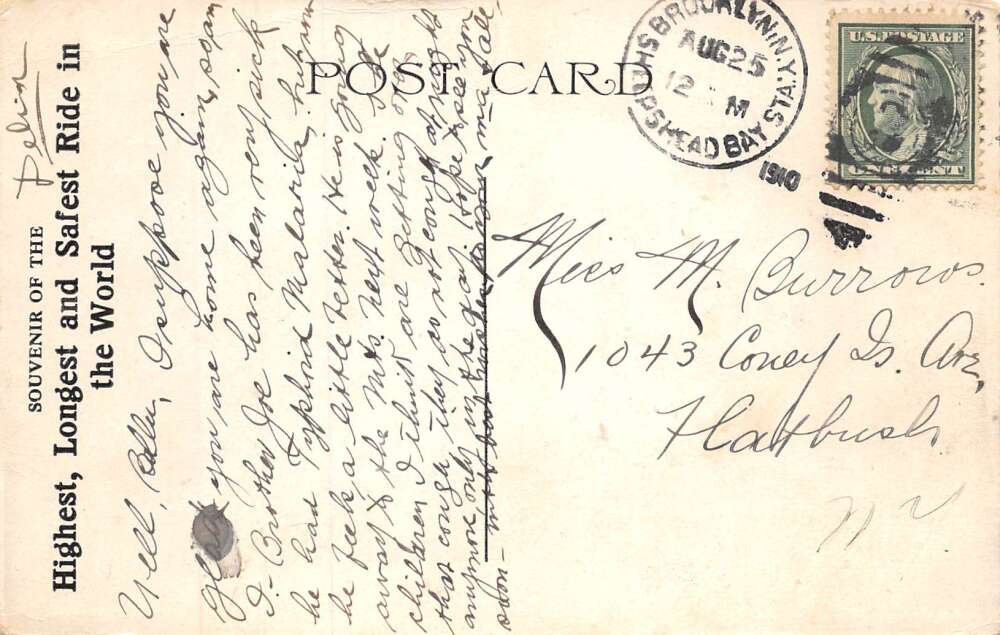 SOUVENIR OF THE
Highest, Longest and Safest Ride in
the World
POST CARD
BROOKLYN, N.Y.
AUG 25
12 M
SHEEPSHEAD BAY STA.
1910
U.S. POSTAGE
ONE CENT
Well, Belle, I suppose you are
glad you are home again, so am
I. Brother Joe has been very sick
he had Typhoid Malaria, but now
he feels a little better. He is going
away to the Mts. next week. The
children I think are getting over
that cough, they do not cough at night
anymore only in the day. Hope to see you
soon
Miss M. Burrows.
1043 Coney Is. Ave,
Flatbush
N Y